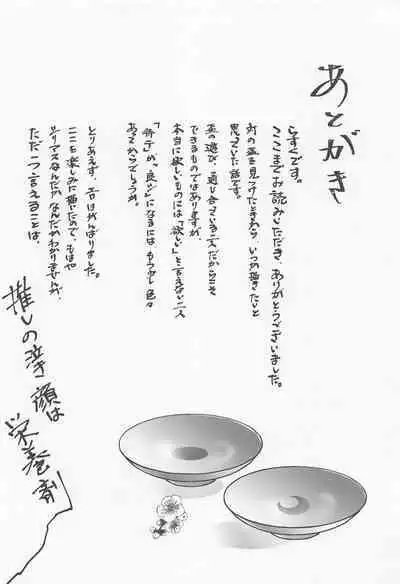 あとがき
らすくです。
ここまでお読みいただき、ありがとうございました。
対の盃を見つけたときから、いつか描きたいと
思っていた話です。
盃の遊び、通じ合っている二人だからこそ
できるものではありますが、
本当に欲しいものには「欲しい」と言えない二人
が「良ツ」になるには、もう少し色々
あってからでしょうか。
とりあえず、エロはがんばりました。
ここを楽しみに描いたので、もはや
シリアスなんだかなんだかわかりませんが、
ただ一つ言えることは、
推しの泣き顔は
栄養剤